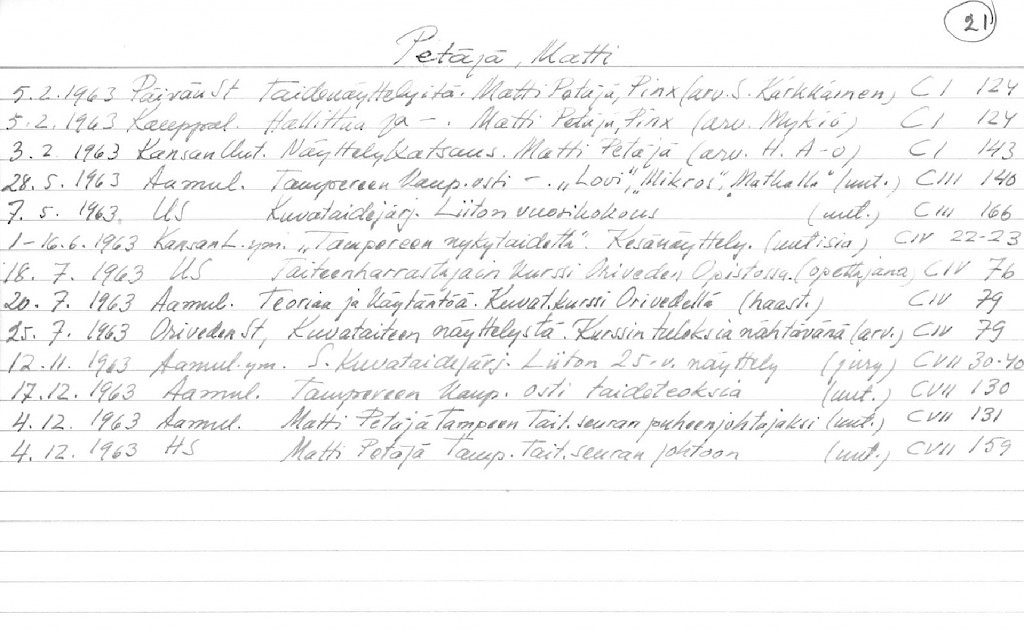 21
Petäjä, Matti
5.2.1963 Päivän St Taidenäyttelyitä. Matti Petäjä, Pinx (arv. S. Kärkkäinen) C I 124
5.2.1963 Kauppal. Hallittua ja -. Matti Petäjä, Pinx (arv. Mykiö) C I 124
3.2.1963 Kansan Uut. Näyttelykatsaus. Matti Petäjä (arv. H. A-o) C I 143
28.5.1963 Aamul. Tampereen Kaup. osti -. „Lovi", „Mikros", „Matkalla" (uut.) C III 140
7.5.1963 US Kuvataidejärj. Liiton vuosikokous (uut.) C III 166
1-16.6.1963 Kansan L. ym. „Tampereen nykytaidetta". Kesänäyttely. (uutisia) C IV 22-23
18.7.1963 US Taiteenharrastajain kurssi Oriveden Opistossa. (opettajana) C IV 76
20.7.1963 Aamul. Teoriaa ja käytäntöä. Kuvat.kurssi Orivedellä (haast.) C IV 79
25.7.1963 Oriveden St, Kuvataiteen näyttelystä. Kurssin tuloksia nähtävänä (arv.) C IV 79
12.11.1963 Aamul. ym. S. Kuvataidejärj. Liiton 25-v. näyttely (jury) C VII 30-40
17.12.1963 Aamul. Tampereen Kaup. osti taideteoksia (uut.) C VII 130
4.12.1963 Aamul. Matti Petäjä Tampeen Tait.seuran puheenjohtajaksi (uut.) C VII 131
4.12.1963 HS Matti Petäjä Tamp. Tait.seuran johtoon (uut.) C VII 159